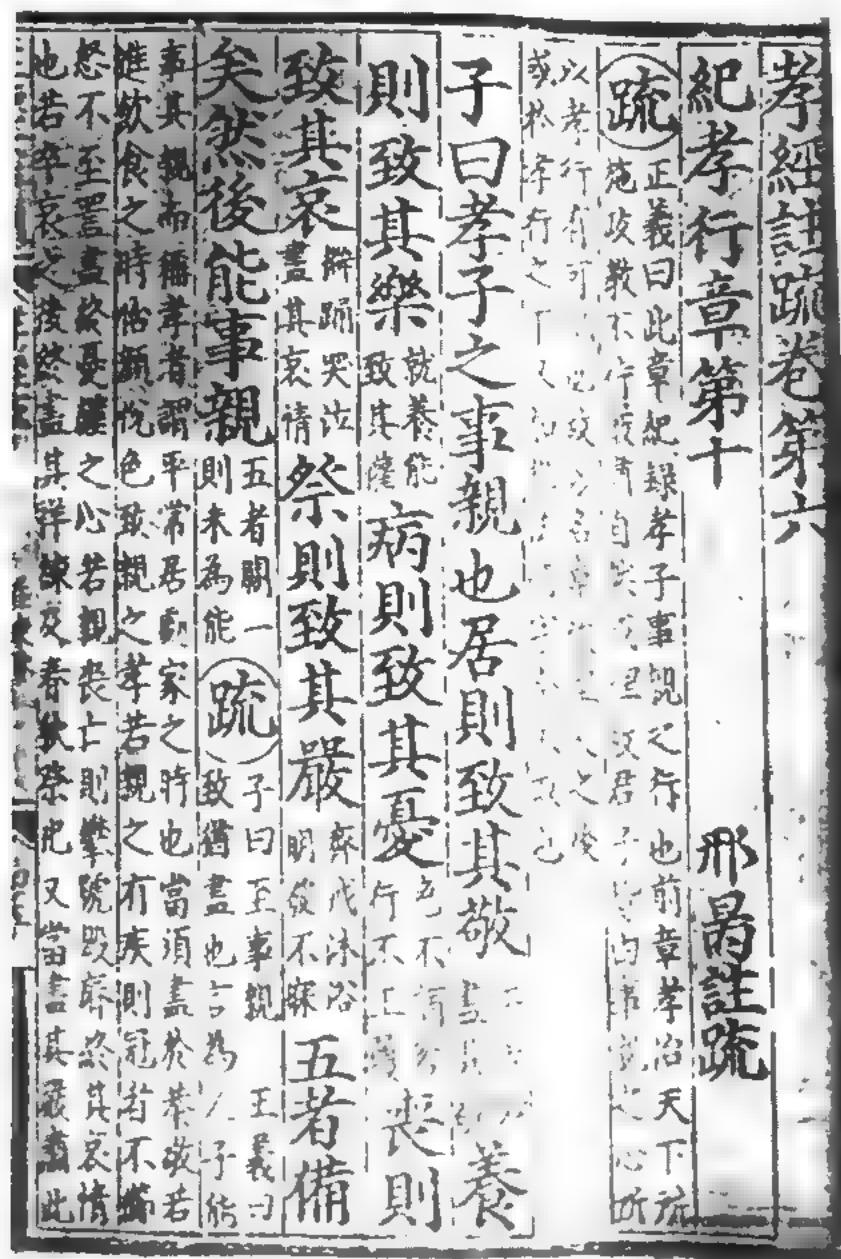 孝經註疏卷第六
紀孝行章第十 邢昺註疏
疏 正義曰此章紀錄孝子事親之行也前章孝治天下所
施政教不待嚴肅自然成理故君子皆由事親之心所
以孝行有可 也故以名章次聖人之後
或於孝行之下又加 也
子曰孝子之事親也居則致其敬 盡其 養
則致其樂 就養能
致其懽
病則致其憂 色不滿容
行不正履
喪則
致其哀 擗踊哭泣
盡其哀情
祭則致其嚴 齊戒沐浴
明發不寐
五者備
矣然後能事親 五者闕一
則未為能
疏 子曰至事親 正義曰
致猶盡也言為人子能
事其親而稱孝者謂平常居處家之時也當須盡於恭敬若
進飲食之時怡顏悅色致親之孝若親之有疾則冠者不櫛
怒不至詈盡終憂謹之心若親喪亡則攀號毀瘠終其哀情
也若卒哀之後終盡其祥練及春秋祭祀又當盡其嚴肅此